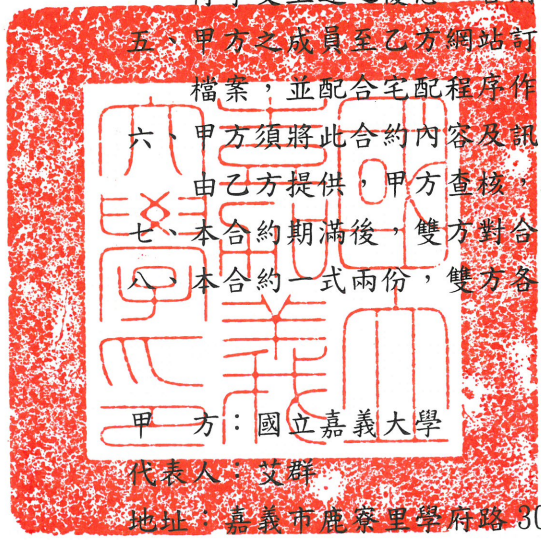 五、甲方之成員至乙方網站訂
檔案，並配合宅配程序作
六、甲方須將此合約內容及訊
由乙方提供，甲方查核，
七、本合約期滿後，雙方對合
八、本合約一式兩份，雙方各
國立嘉義大學印
甲　方：國立嘉義大學
代表人：艾群
地址：嘉義市鹿寮里學府路 30